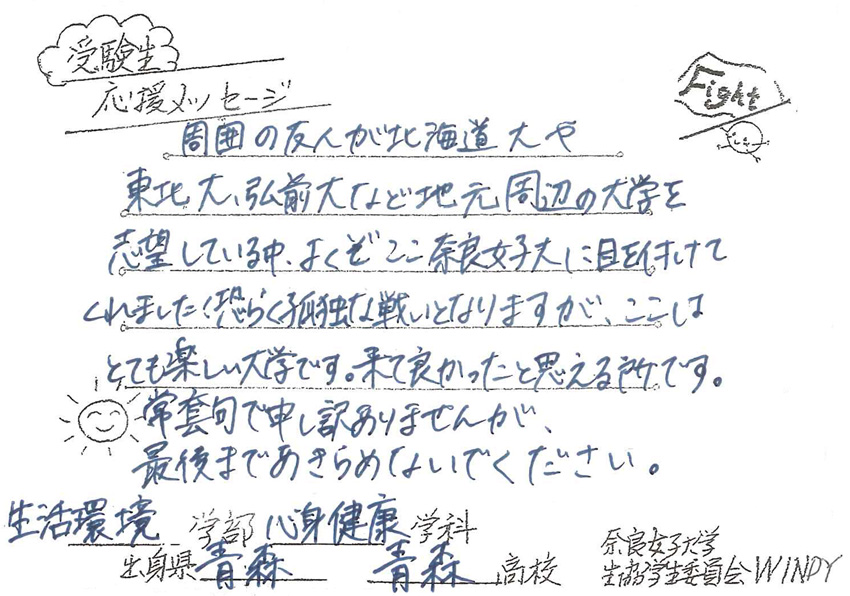 受験生
応援メッセージ
Fight
周囲の友人が北海道大や
東北大、弘前大など地元周辺の大学を
志望している中、よくぞここ奈良女子大に目を付けて
くれました！恐らく孤独な戦いとなりますが、ここは
とても楽しい大学です。来て良かったと思える所です。
常套句で申し訳ありませんが、
最後まであきらめないでください。
生活環境 学部 心身健康 学科
出身県 青森 青森 高校
奈良女子大学
生協学生委員会WINDY